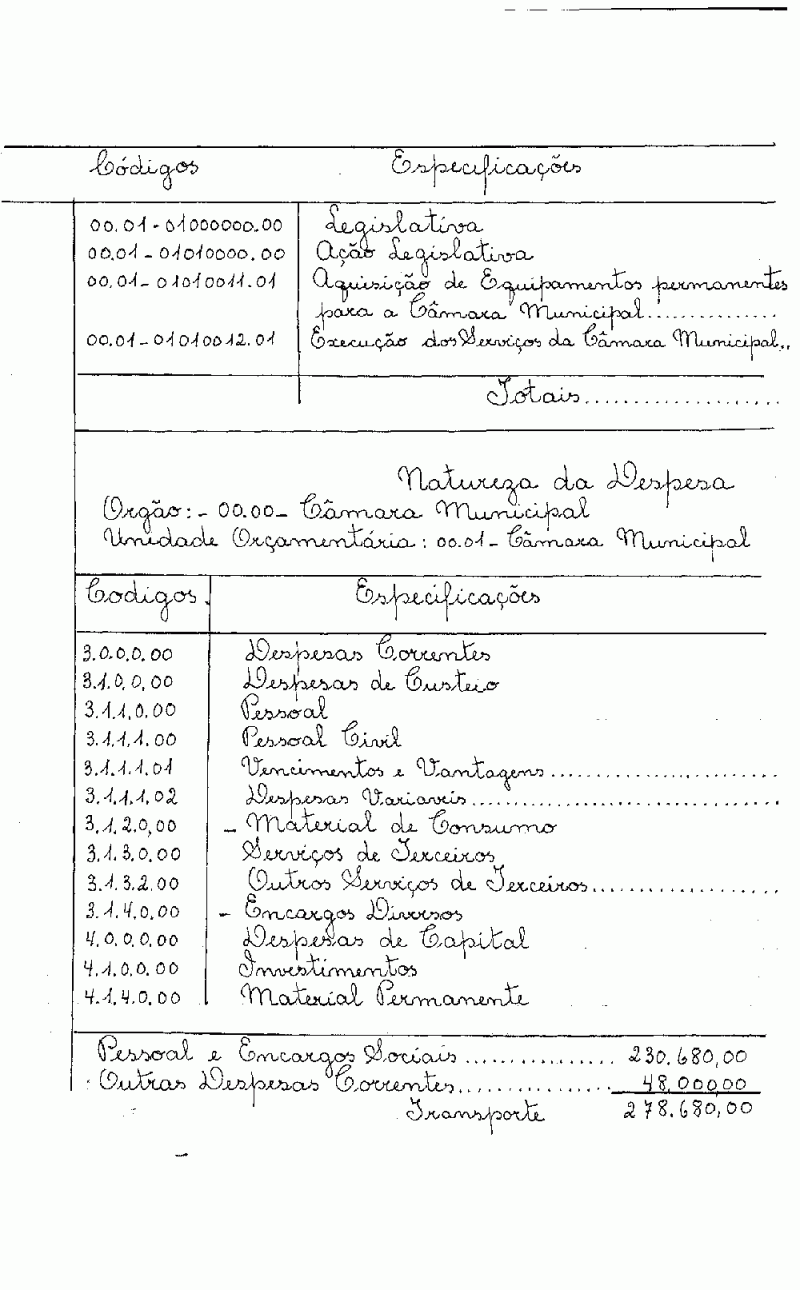 Códigos Especificações
00.01-01000000.00 Legislativa
00.01-01010000.00 Ação Legislativa
00.01-01010011.01 Aquisição de Equipamentos permanentes
para a Câmara Municipal...............
00.01-01010012.01 Execução dos Serviços da Câmara Municipal..
Totais....................
Natureza da Despesa
Orgão:- 00.00- Câmara Municipal
Unidade Orçamentária: 00.01- Câmara Municipal
Codigos. Especificações
3.0.0.0.00 Despesas Correntes
3.1.0.0.00 Despesas de Custeio
3.1.1.0.00 Pessoal
3.1.1.1.00 Pessoal Civil
3.1.1.1.01 Vencimentos e Vantagens........................
3.1.1.1.02 Despesas Variaveis................................
3.1.2.0.00 - Material de Consumo
3.1.3.0.00 Serviços de Terceiros
3.1.3.2.00 Outros Serviços de Terceiros....................
3.1.4.0.00 - Encargos Diversos
4.0.0.0.00 Despesas de Capital
4.1.0.0.00 Investimentos
4.1.4.0.00 Material Permanente
Pessoal e Encargos Sociais ................ 230.680,00
Outras Despesas Correntes................ 48.000,00
Transporte 278.680,00